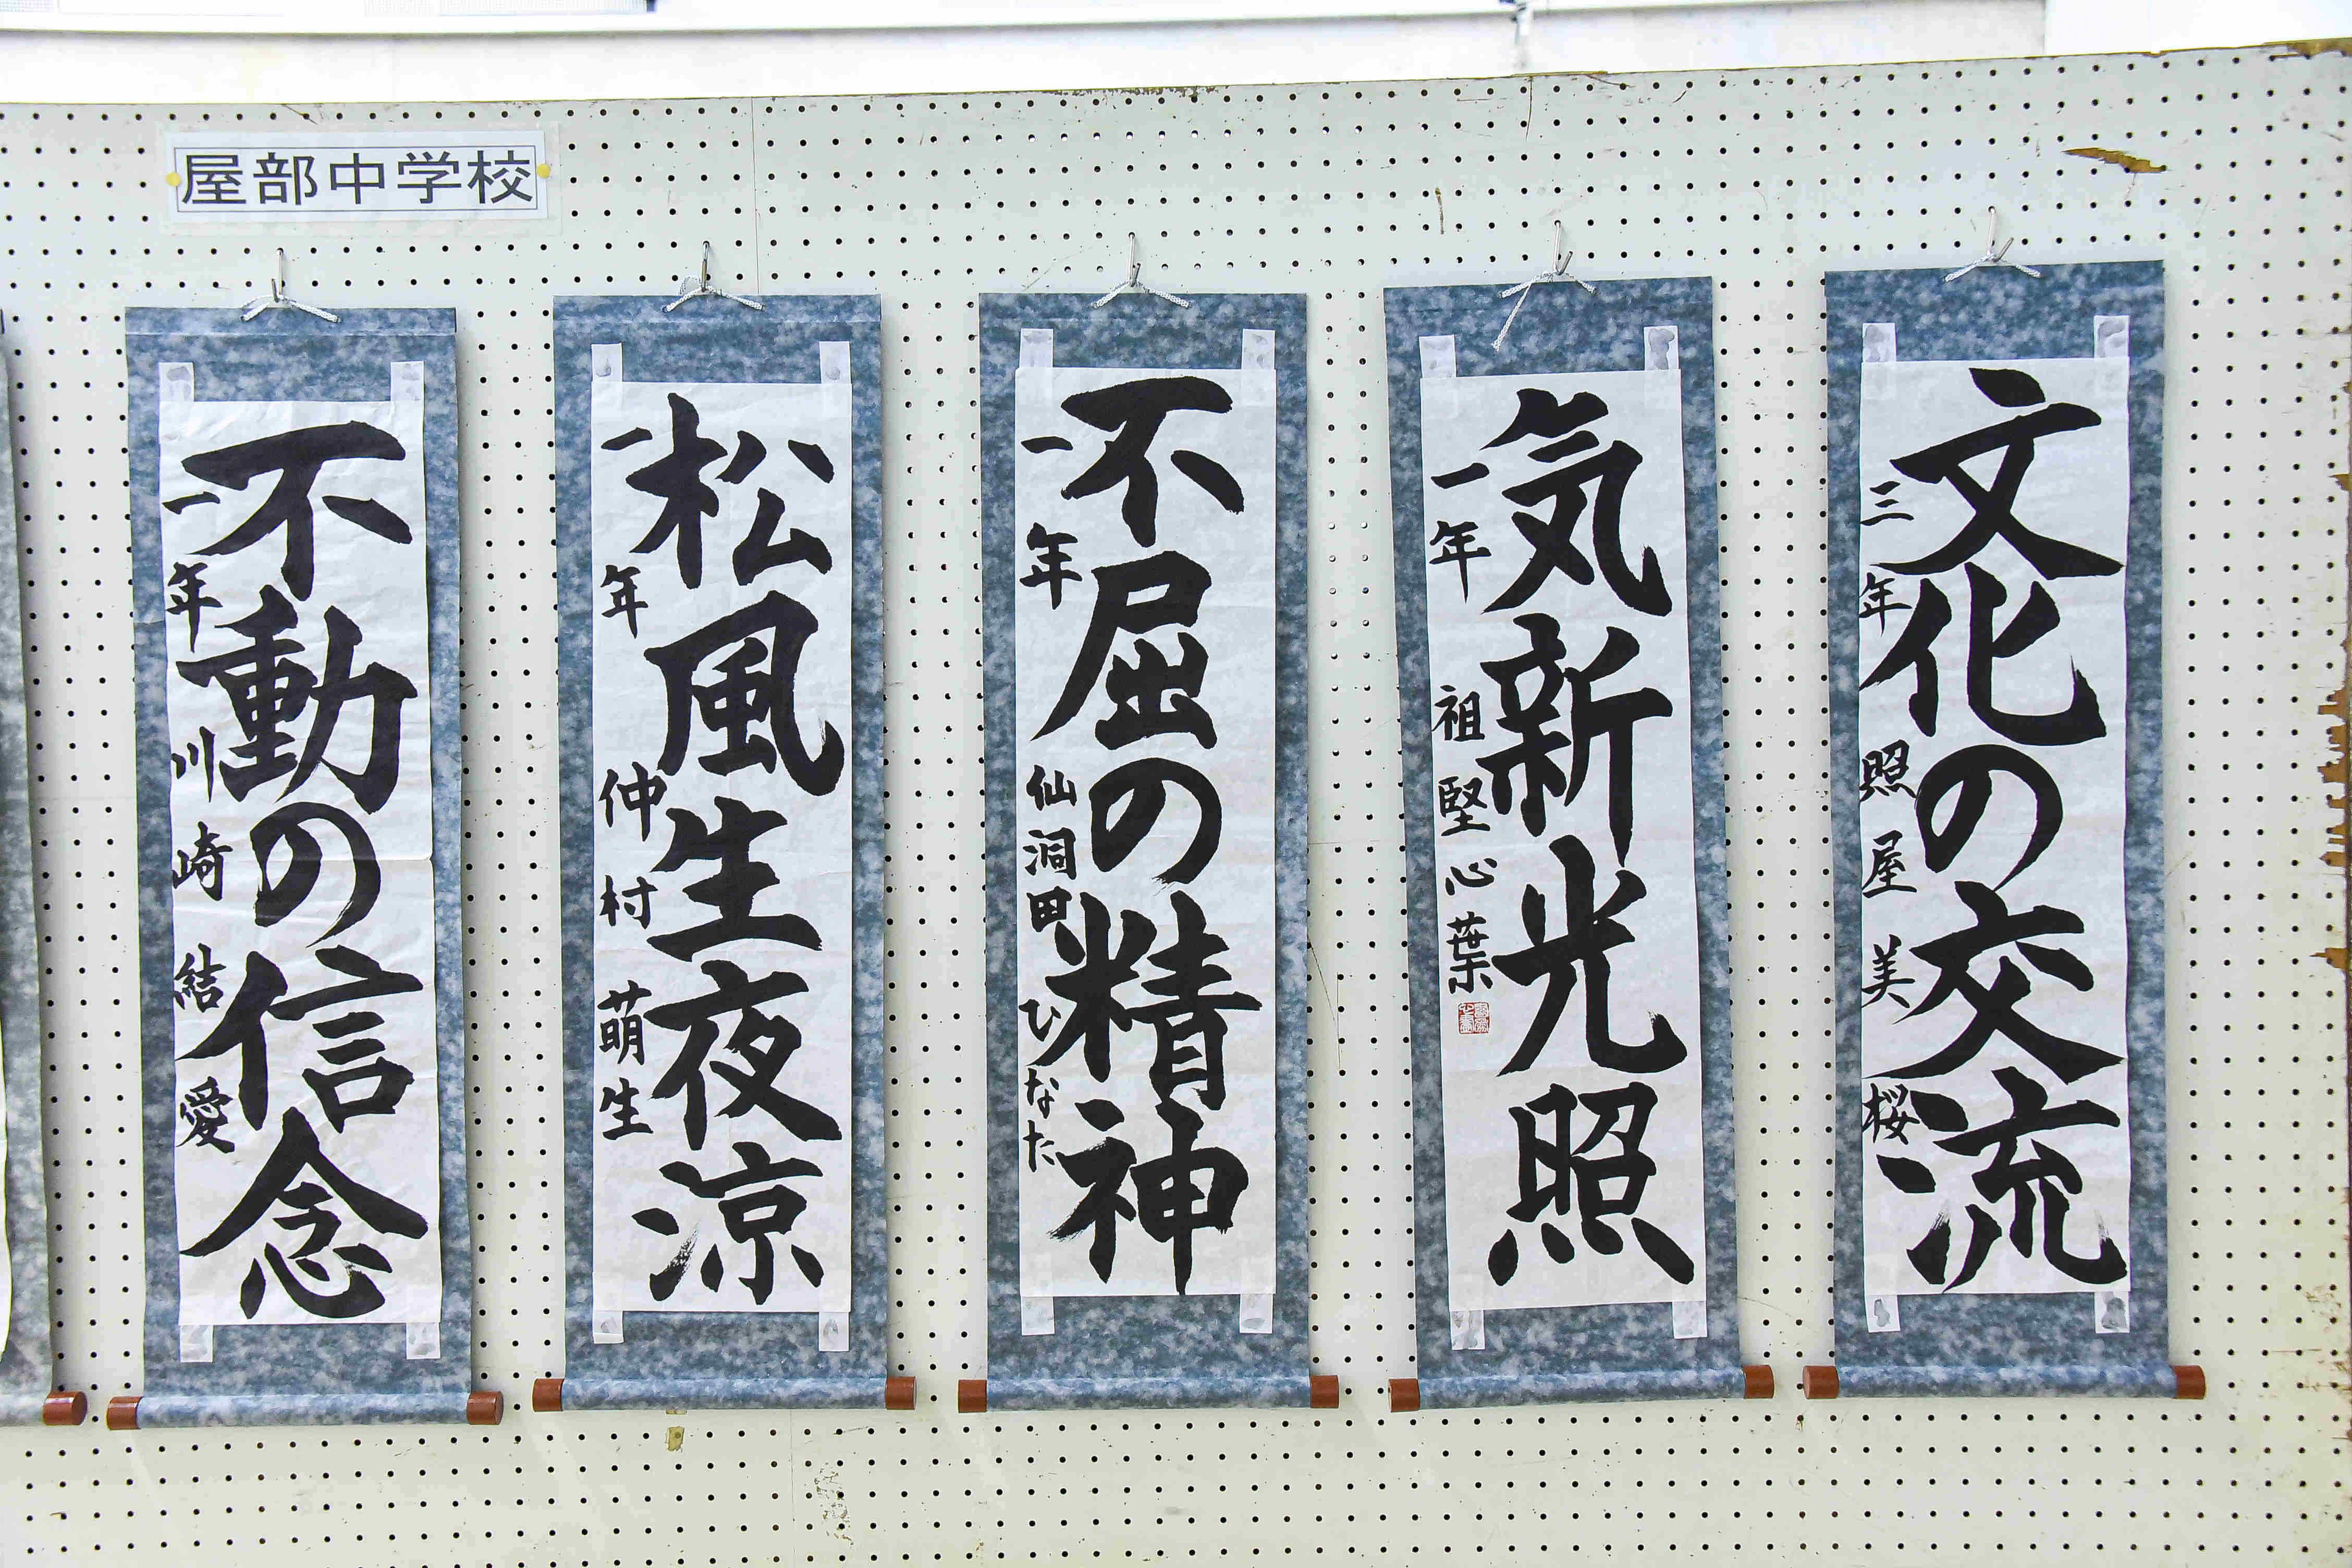 屋部中学校
文化の交流
三年 照屋美桜
気新光照
一年 祖堅心葉
不屈の精神
一年 仙洞田ひなた
松風生夜涼
一年 仲村萌生
不動の信念
一年 川崎結愛